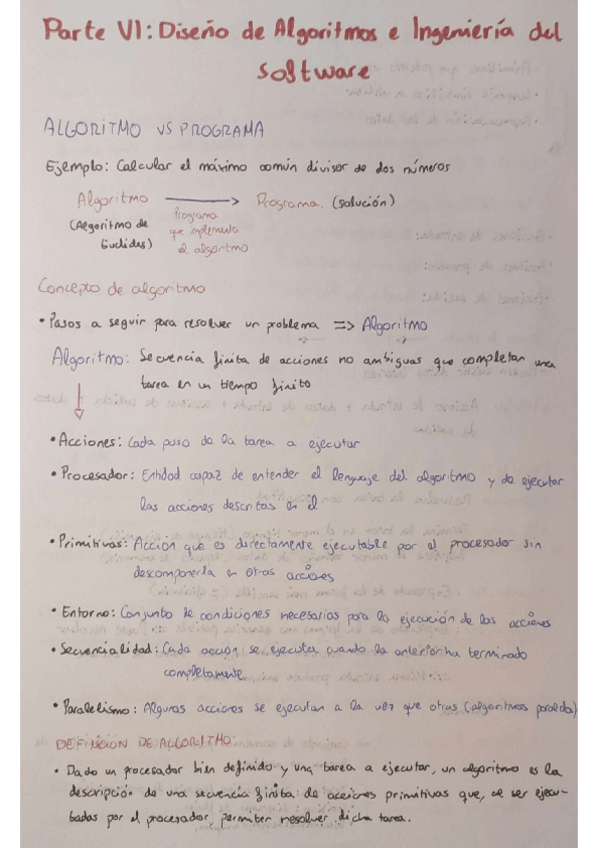 Parte VI: Diseño de Algoritmos e Ingeniería del
software
ALGORITMO VS PROGRAMA
Ejemplo: Calcular el máximo común divisor de dos números
Algoritmo → Programa. (solución)
(Algoritmo de
Euclides)
Programa
que implementa
el algoritmo
Concepto de algoritmo
• Pasos a seguir para resolver un problema => Algoritmo
Algoritmo: Secuencia finita de acciones no ambiguas que completan una
tarea en un tiempo finito
• Acciones: Cada paso de la tarea a ejecutar
• Procesador: Entidad capaz de entender el lenguaje del algoritmo y de ejecutar
las acciones descritas en él
• Primitivas: Acción que es directamente ejecutable por el procesador sin
descomponerla en otras acciones
• Entorno: Conjunto de condiciones necesarias para la ejecución de las acciones
• Secuencialidad: Cada acción se ejecuta cuando la anterior ha terminado
completamente
• Paralelismo: Algunas acciones se ejecutan a la vez que otras (algoritmos paralelos)
DEFINICION DE ALGORITMO:
• Dado un procesador bien definido y una tarea a ejecutar, un algoritmo es la
descripción de una secuencia finita de acciones primitivas que, al ser ejecu-
tadas por el procesador, permiten resolver dicha tarea.